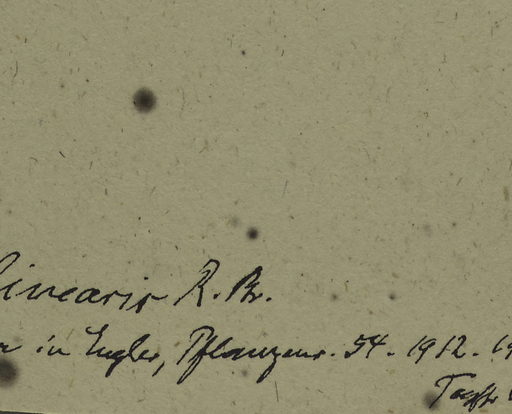 linearis R. Br.
in Engler, Pflanzenr. 54. 1912.